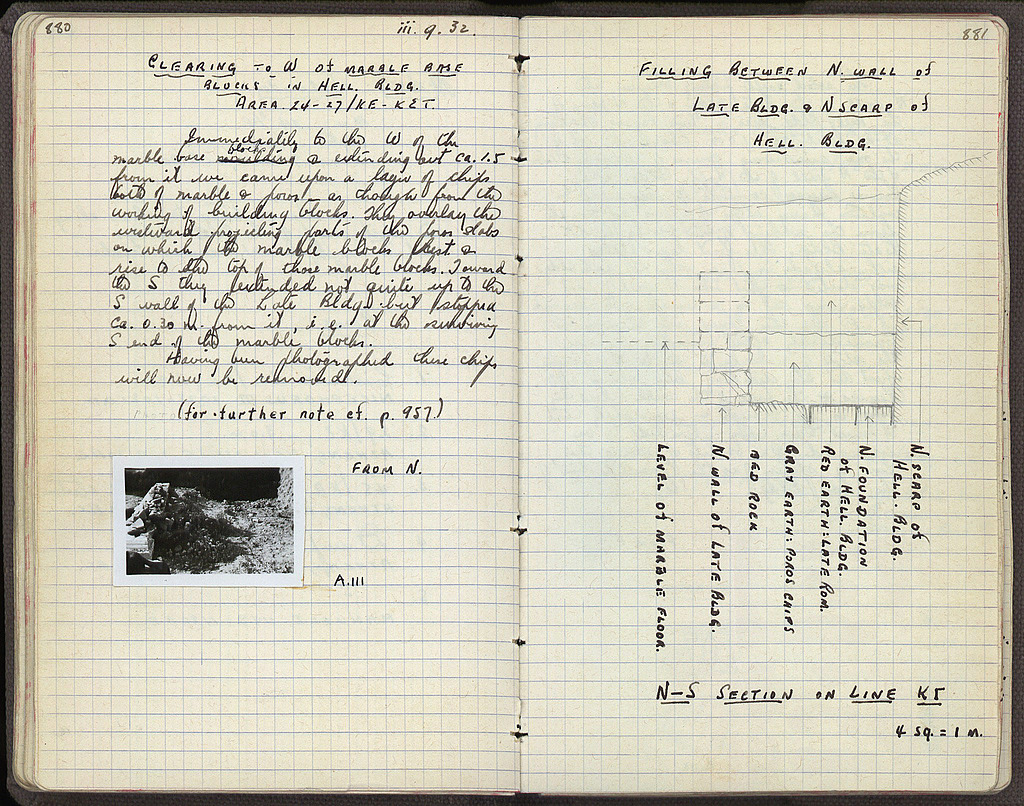 880
iii. 9. 32.
CLEARING TO W OF MARBLE BASE
BLOCKS IN HELL. BLDG.
AREA. 24-27/KE-
Immediately to the W of the
marble base blocks & extending out ca. 1.5
from it we came upon a layer of chips
both of marble & poros - as though from the
working of building blocks. They overlay the
westward projecting parts of the poros slabs
on which the marble blocks rest &
rise to the top of those marble blocks. Toward
the S they extended not quite up to the
S wall of the Late Bldg. but stopped
ca. 0.30 m. from it, i.e. at the surviving
S end of the marble blocks.
Having been photographed these chips
will now be removed.
(for further note cf. p. 957.)
FROM N.
A.111
881
FILLING BETWEEN N. WALL of
LATE BLDG. & N SCARP of
HELL. BLDG.
LEVEL OF MARBLE FLOOR.
N. WALL of LATE BLDG.
BED ROCK
GRAY EARTH: POROS CHIPS
RED EARTH: LATE ROM.
N. FOUNDATION
of HELL. BLDG.
N. SCARP of
HELL. BLDG.
N-S SECTION ON LINE
4 SQ. = 1 M.